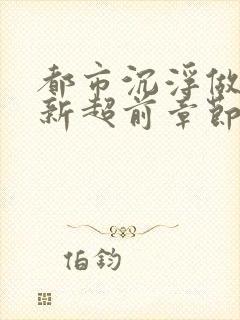 都市沉浮做
新超前章節
伯鈞